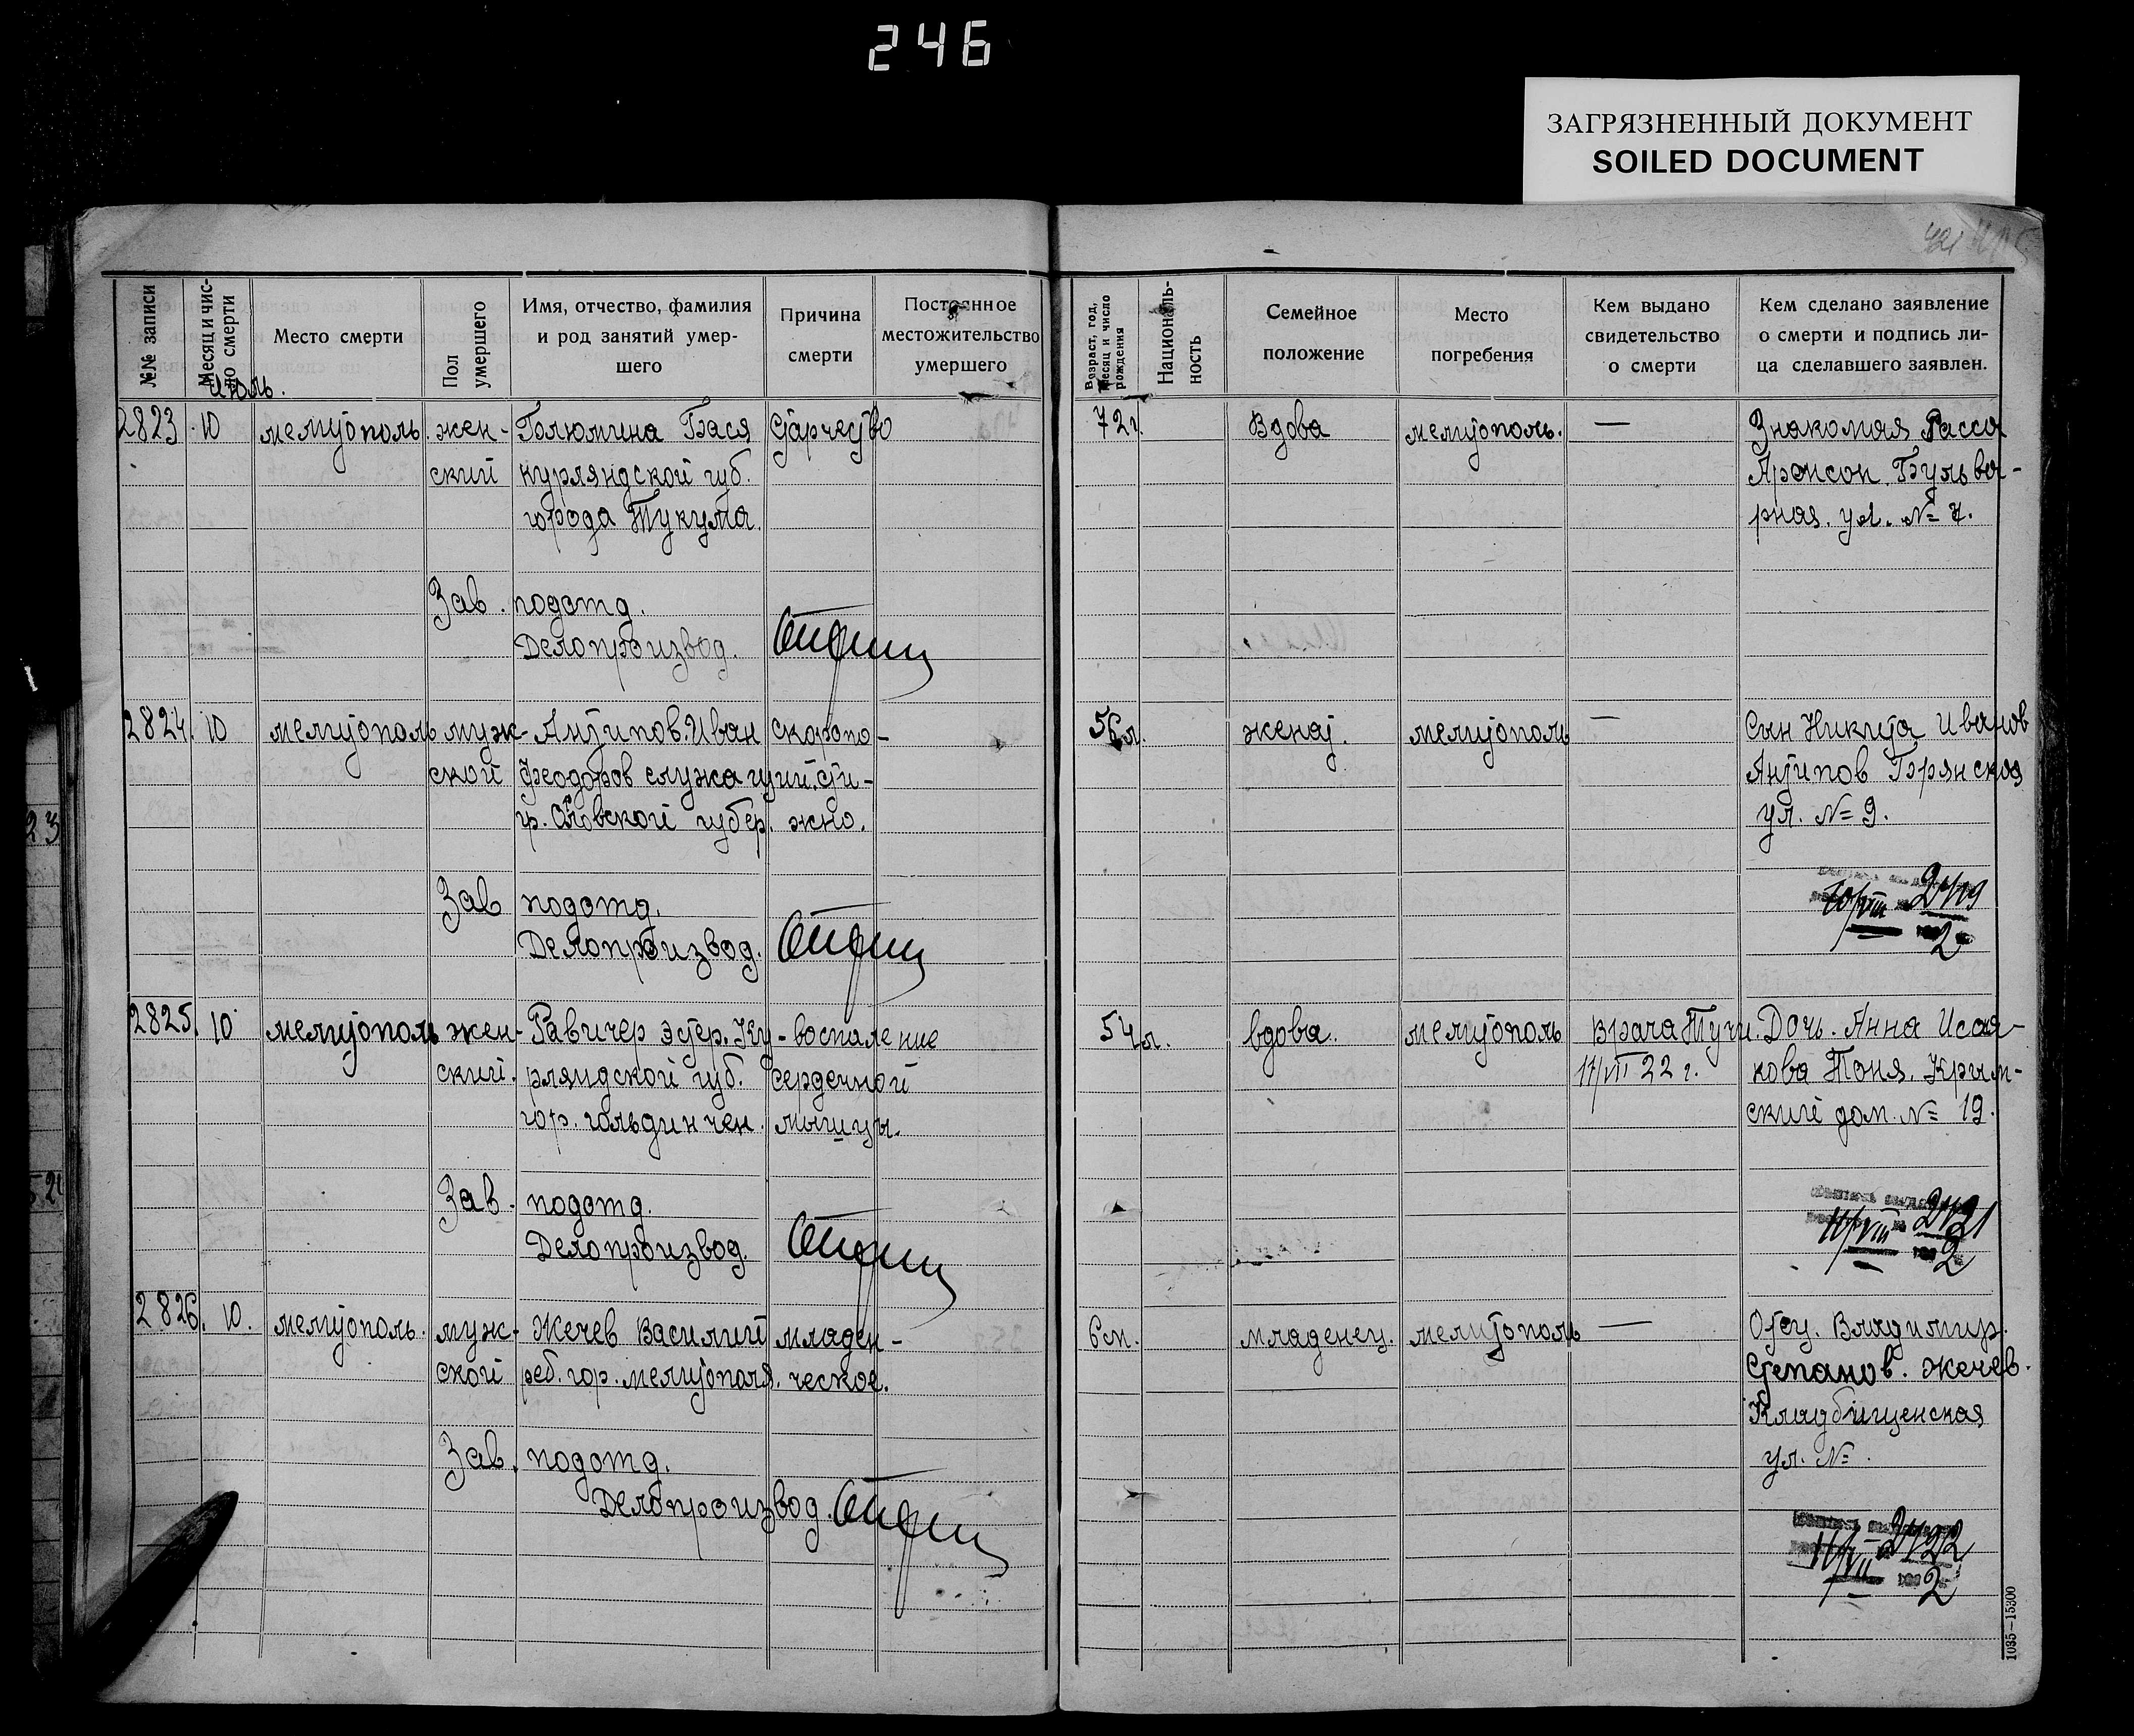 246
ЗАГРЯЗНЕННЫЙ ДОКУМЕНТ
SOILED DOCUMENT
№№ записи
Месяц и число смерти
Место смерти
Пол умершего
Имя, отчество, фамилия
и род занятий умер-
шего
Причина
смерти
Постоянное
местожительство
умершего
Возраст, год,
месяц и число
рождения
Националь-
ность
Семейное
положение
Место
погребения
Кем выдано
свидетельство
о смерти
Кем сделано заявление
о смерти и подпись ли-
ца сделавшего заявлен.
Июль.
2823 10 мелитополь. жен- Голюмина Бася Старчество 72 г. Вдова мелитополь. — Знакомая Расса
ский Курляндской губ. Аронсон. Бульва-
города Тукума. рная. ул. № 7.
Зав. подотд.
Делопроизвод.
2824. 10 мелитополь муж- Антипов. Иван скоропо- 56 л. женат. мелитополь — Сын Никита Иванов
ской Феодоров служащий. сти- Антипов Брянская
гр. губер. жно. ул. № 9.
Зав подотд.
Делопроизвод.
10/VIII 2119
2
2825. 10 мелитополь жен- Равичер Эстер. Ку- воспаление 54 л. вдова. мелитополь Врача Дочь. Анна Исаа-
ский. рляндской губ. сердечной 17/VII 22 г. кова Тоня. Крым-
гор. гольдинчен. мышцы. ский дом. № 19.
Зав. подотд.
Делопроизвод.
11/VIII 2121
2
2826. 10. мелитополь. муж- Жечев Василий младен- 6 м. младенец. мелитополь — Отец. Владимир.
ской реб. гор. мелитополя. ческое. Степанов. Жечев.
Кладбищенская
ул. № .
Зав. подотд.
Делопроизвод.
2122
2
1035—15300